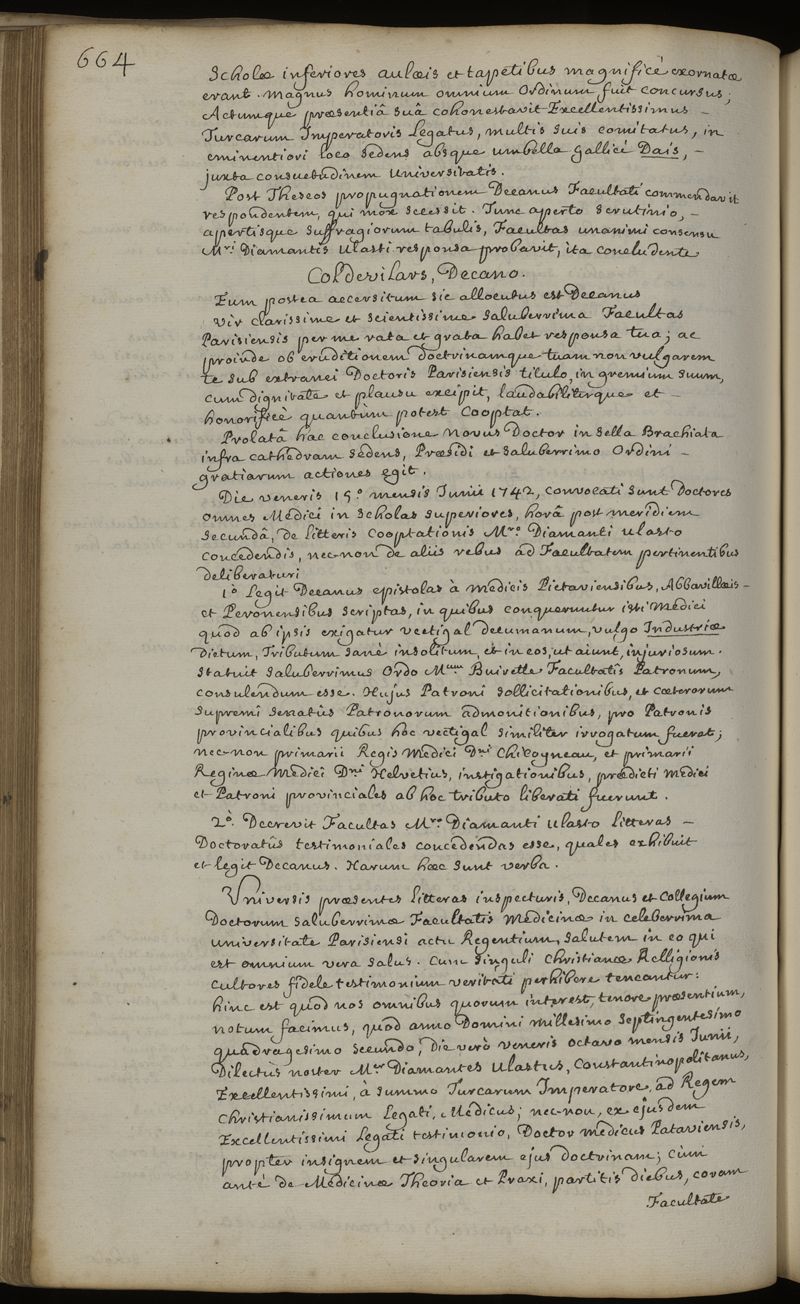 664
Scholæ inferiores aulæis et tapetibus magnificè exornatæ
erant. Magnus hominum omnium Ordinum fuit concursus;
Actumque præsentiâ suâ cohonestavit Excellentissimus –
Turcarum Imperatoris Legatus, multis suis comitatus, in
eminentiori loco sedens absque umbella gallicè Dais, –
juxta consuetudinem Universitatis.
Post Theseos propugnationem Decanus Facultati commendavit
respondentem, qui mox secessit. Tunc aperto scrutinio, –
apertisque suffragiorum tabulis, Facultas unanimi consensu
Mri Diamantis Ulasti responsa probavit, ita concludente
Coldevilars, Decano.
Eum postea accersitum sic allocutus est Decanus
Vir clarissime et scientissime saluberrima Facultas
Parisiensis per me rata et grata habet responsa tua; ac
proinde ob eruditionem doctrinamque tuam non vulgarem
te sub extranei Doctoris Parisiensis titulo, in gremium suum,
cum dignitate et plausu excipit, laudabiliterque et –
honorificè quantùm potest Cooptat.
Prolatâ hac conclusione novus Doctor in sella Brachiata
infra cathedram sedens, Præsidi et saluberrimo Ordini –
gratiarum actiones egit.
Die veneris 15° mensis Junii 1742, convocati sunt Doctores
omnes Medici in Scholas superiores, horâ post meridiem
secundâ, de litteris Cooptationis Mro Diamanti Ulasto
concedendis, nec-non de aliis rebus ad Facultatem pertinentibus
deliberaturi
1° Legit Decanus epistolas à Medicis Pictaviensibus, Abbavillæis –
et Peronensibus scriptas, in quibus conqueruntur isti Medici
quòd ab ipsis exigatur vectigal decumanum, vulgo Industriæ
Dictum, Tributum sane insolitum, et in eos, ut aiunt, injuriosum.
Statuit saluberrimus Ordo Mum Buirette Facultatis Patronum,
consulendum esse. Hujus Patroni sollicitationibus, et cæterorum
supremi Senatûs Patronorum admonitionibus, pro Patronis
provincialibus quibus hoc vectigal similiter irrogatum fuerat;
nec-non primarii Regis Medici Dni Chicoyneau, et primarii
Reginæ Medici Dni Helvetius, instigationibus, prædicti Medici
et Patroni provinciales ab hoc tributo liberati fuerunt.
2°. Decrevit Facultas Mro Diamanti Ulasto litteras –
Doctoratûs testimoniales concedendas esse, quales exhibuit
et legit Decanus. Harum hæc sunt verba.
Universis præsentes litteras inspecturis, Decanus et Collegium
Doctorum saluberrimæ Facultatis Medicinæ in celeberrima
universitate Parisiensi actu Regentium, salutem in eo qui
est omnium vera salus. Cum singuli Christianæ Relligionis
Cultores fidele testimonium veritati perhibere teneantur:
hinc est quod nos omnibus quorum interest, tenore præsentium,
notum facimus, quod anno Domini millesimo septingentesimo
quadragesimo secundo, Die verò veneris octavo mensis Junii,
Dilectus noster Mer Diamantes Ulastus, Constantinopolitanus,
Excellentissimi, à summo Turcarum Imperatore, ad Regem
Christianissimum Legati, Medicus; nec-non, ex ejusdem
Excellentissimi Legati testimonio, Doctor medicus Pataviensis,
propter insignem et singularem ejus doctrinam; cùm
antè de Medicinæ Theoria et Praxi, partitis diebus, coram
Facultate